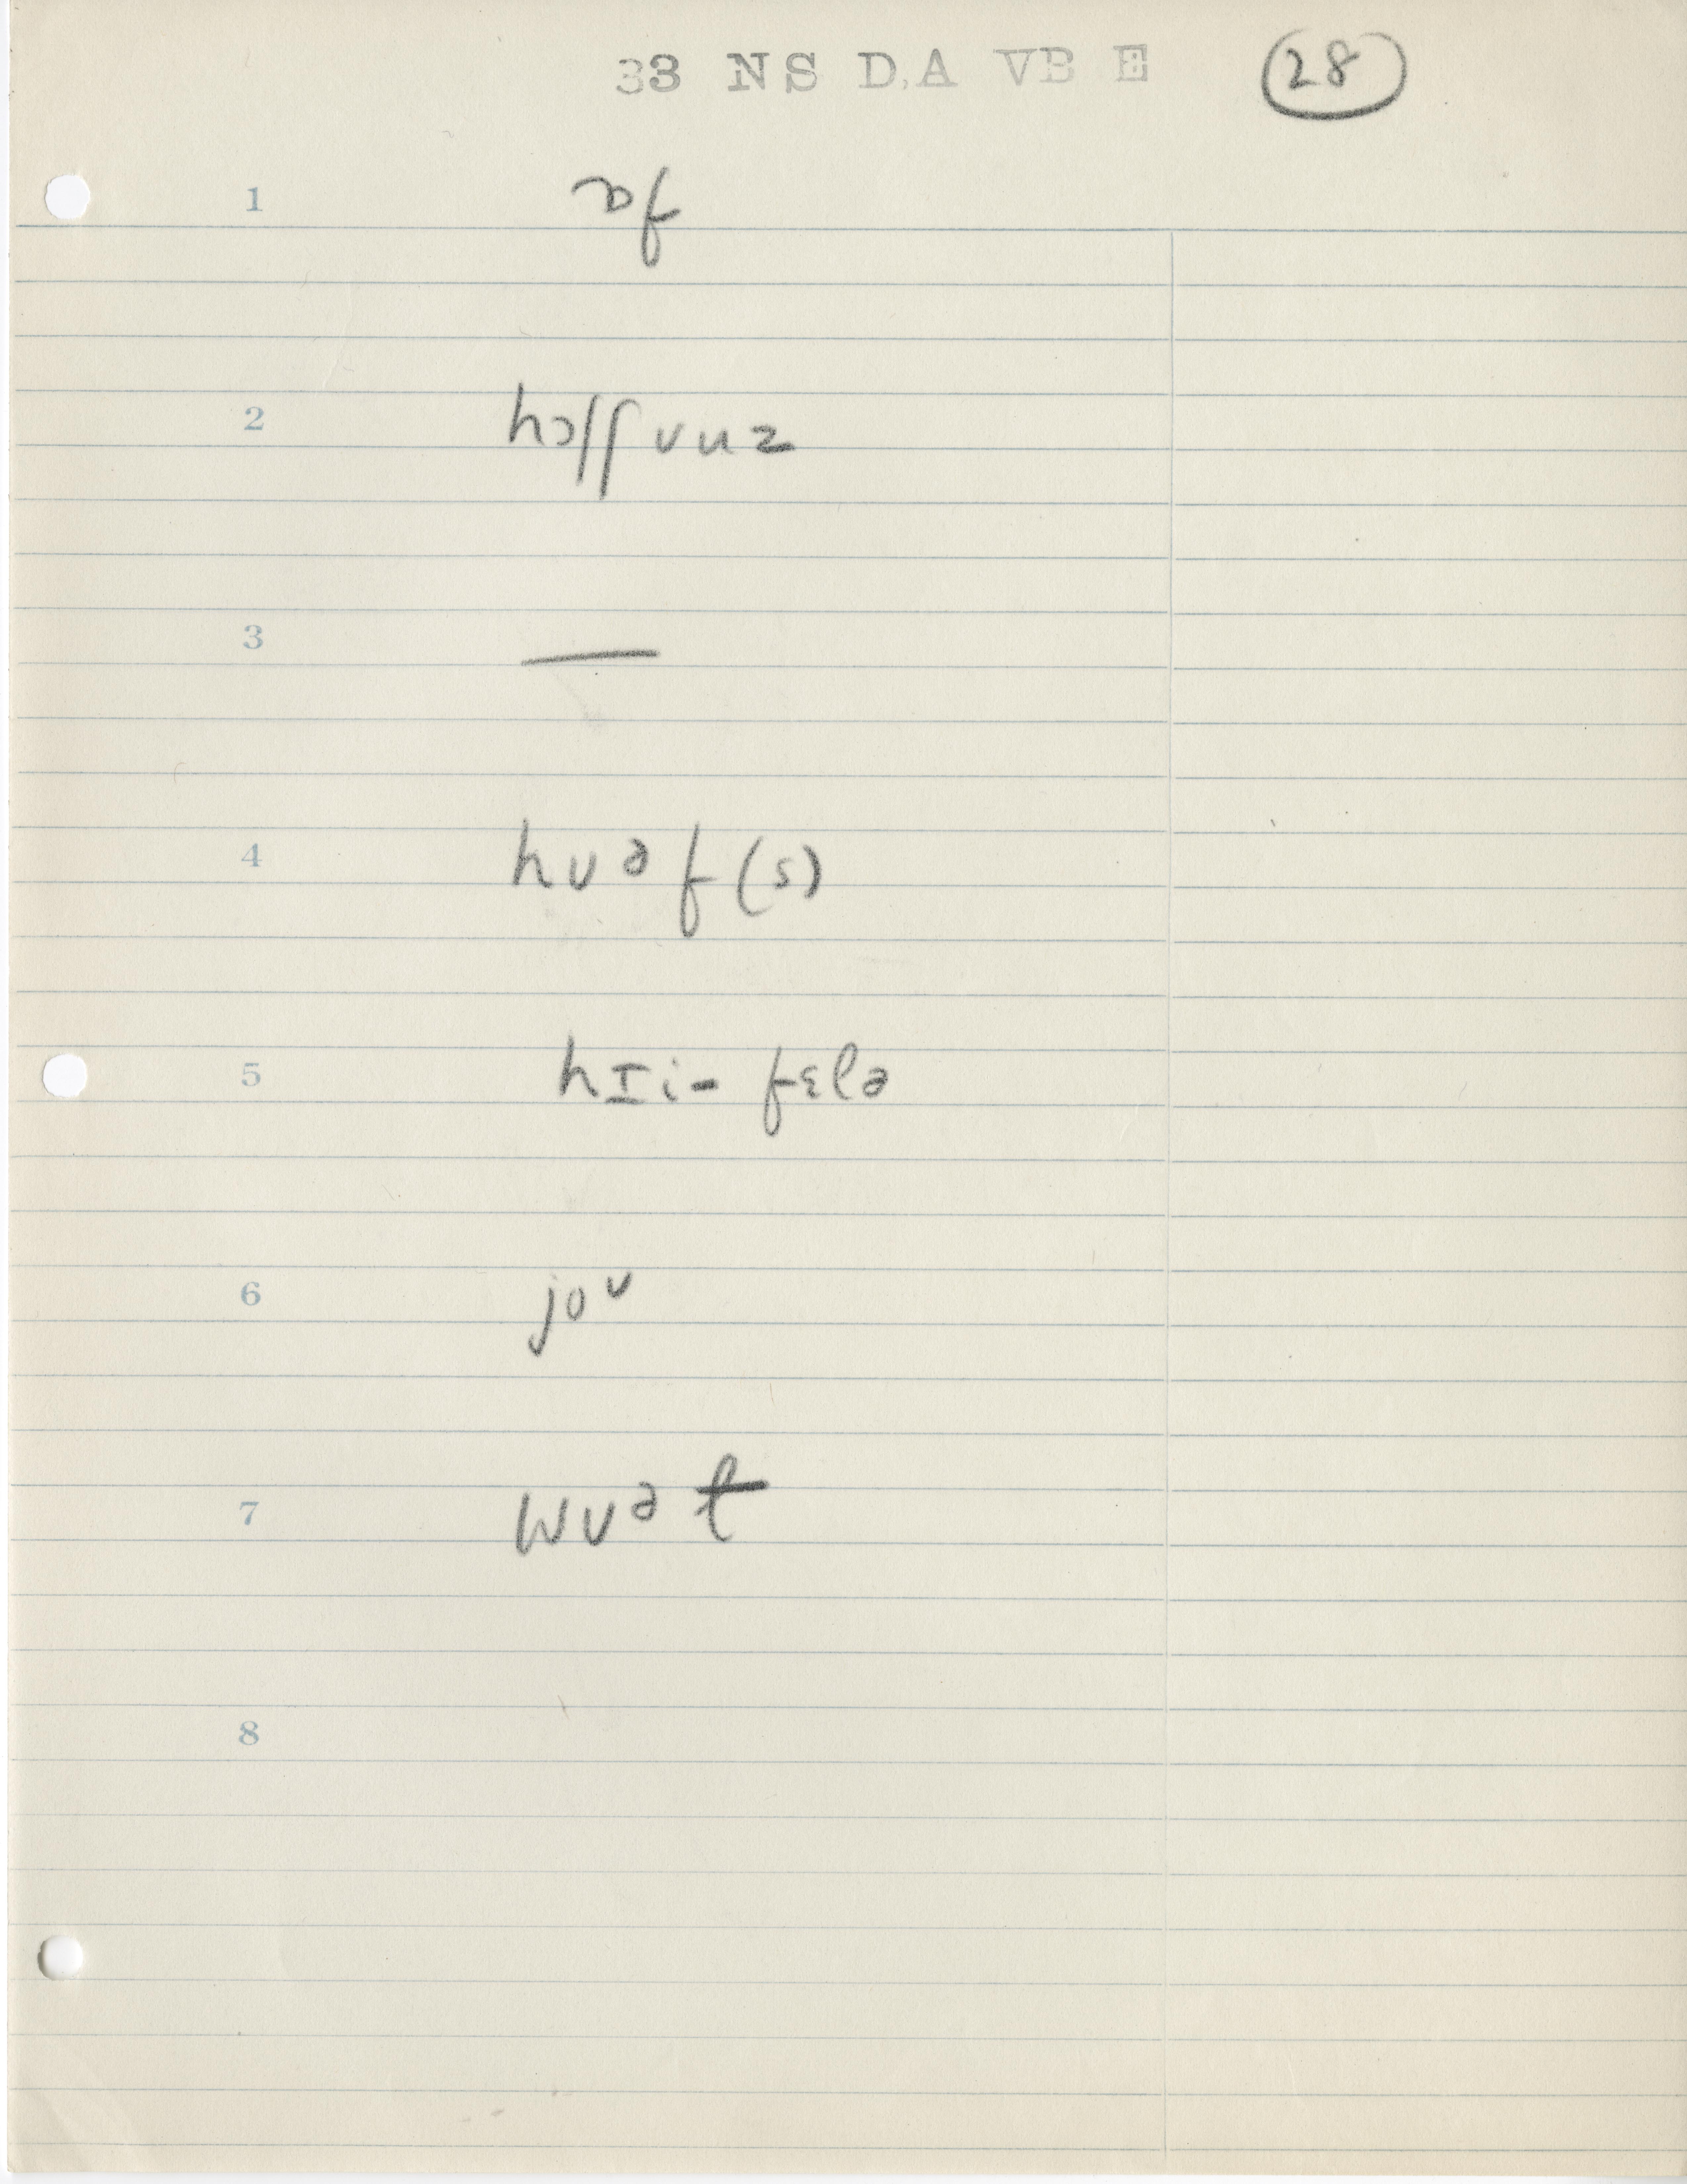 33 NS D,A VB E 28
1 ɔf
2 hɔʃʃʊnz
3 —
4 hʊəf(s)
5 hIi- fɛlə
6 joʊ
7 wʊət
8